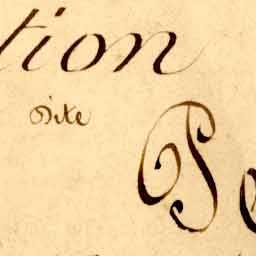 tion
Dite
Po